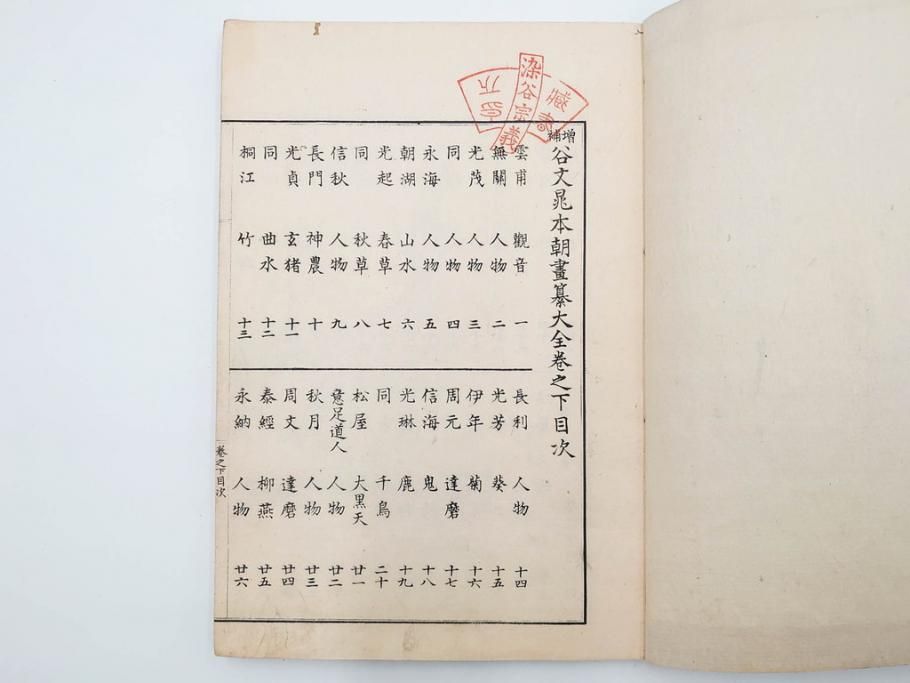 染谷宗義
藏書
増補谷文晁本朝畫纂大全卷之下目次
雲甫 觀音 一
無關 人物 二
光茂 人物 三
同 人物 四
永海 人物 五
朝湖 山水 六
光起 春草 七
同 秋草 八
信秋 人物 九
長門 神農 十
光貞 玄猪 十一
同 曲水 十二
桐江 竹 十三
長利 人物 十四
光芳 葵 十五
伊年 菊 十六
周元 達磨 十七
信海 鬼 十八
光琳 鹿 十九
同 千鳥 二十
松屋 大黒天 廿一
意足道人 人物 廿二
秋月 人物 廿三
周文 達磨 廿四
泰經 柳燕 廿五
永納 人物 廿六
卷之下目次